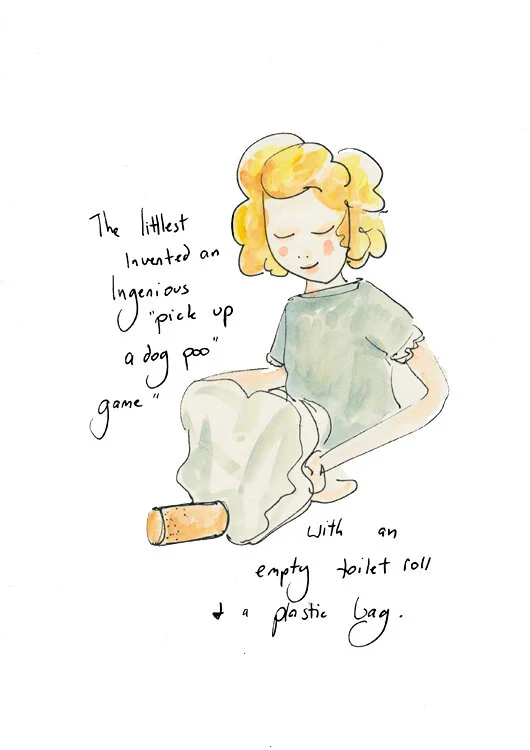 The littlest
Invented an
Ingenious
"pick up
a dog poo"
game"
With an
empty toilet roll
& a plastic bag.